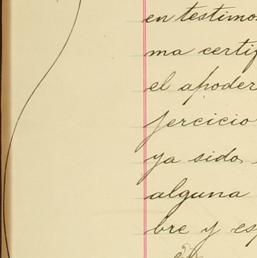 en testimo
ma certif
el apoder
jercicio
ya sido
alguna
bre y es